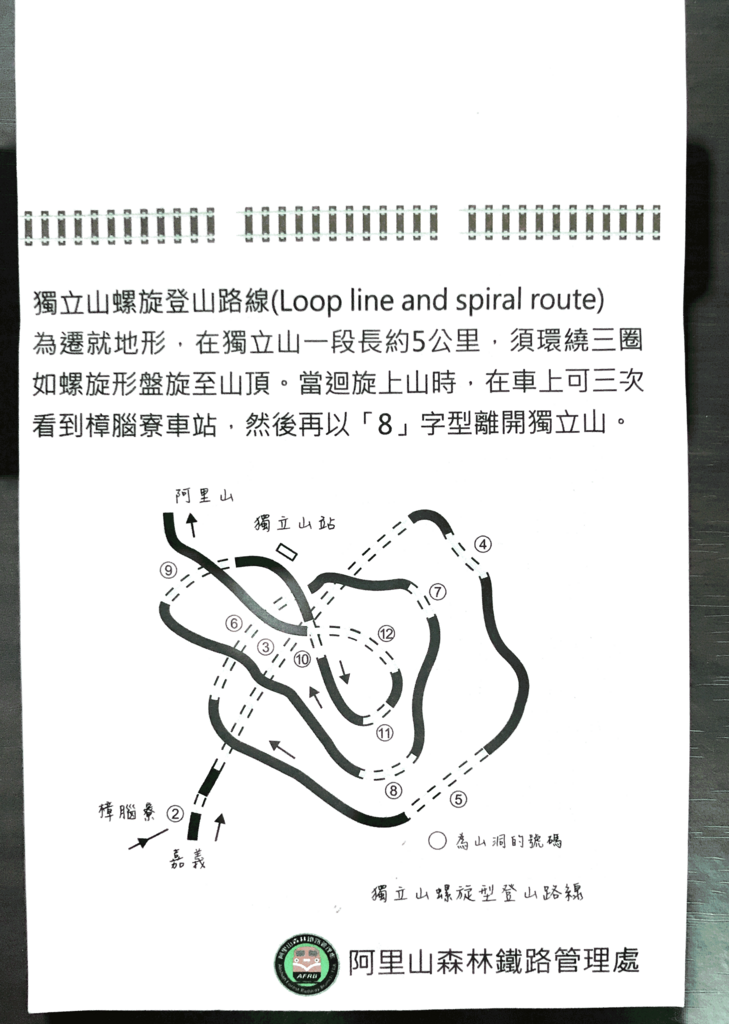 獨立山螺旋登山路線(Loop line and spiral route)
為遷就地形，在獨立山一段長約5公里，須環繞三圈
如螺旋形盤旋至山頂。當迴旋上山時，在車上可三次
看到樟腦寮車站，然後再以「8」字型離開獨立山。
阿里山
獨立山站
④
⑨
⑦
⑥
⑫
③
⑩
⑪
⑧
⑤
樟腦寮 ②
嘉義
○為山洞的號碼
獨立山螺旋型登山路線
AFRB
阿里山森林鐵路管理處